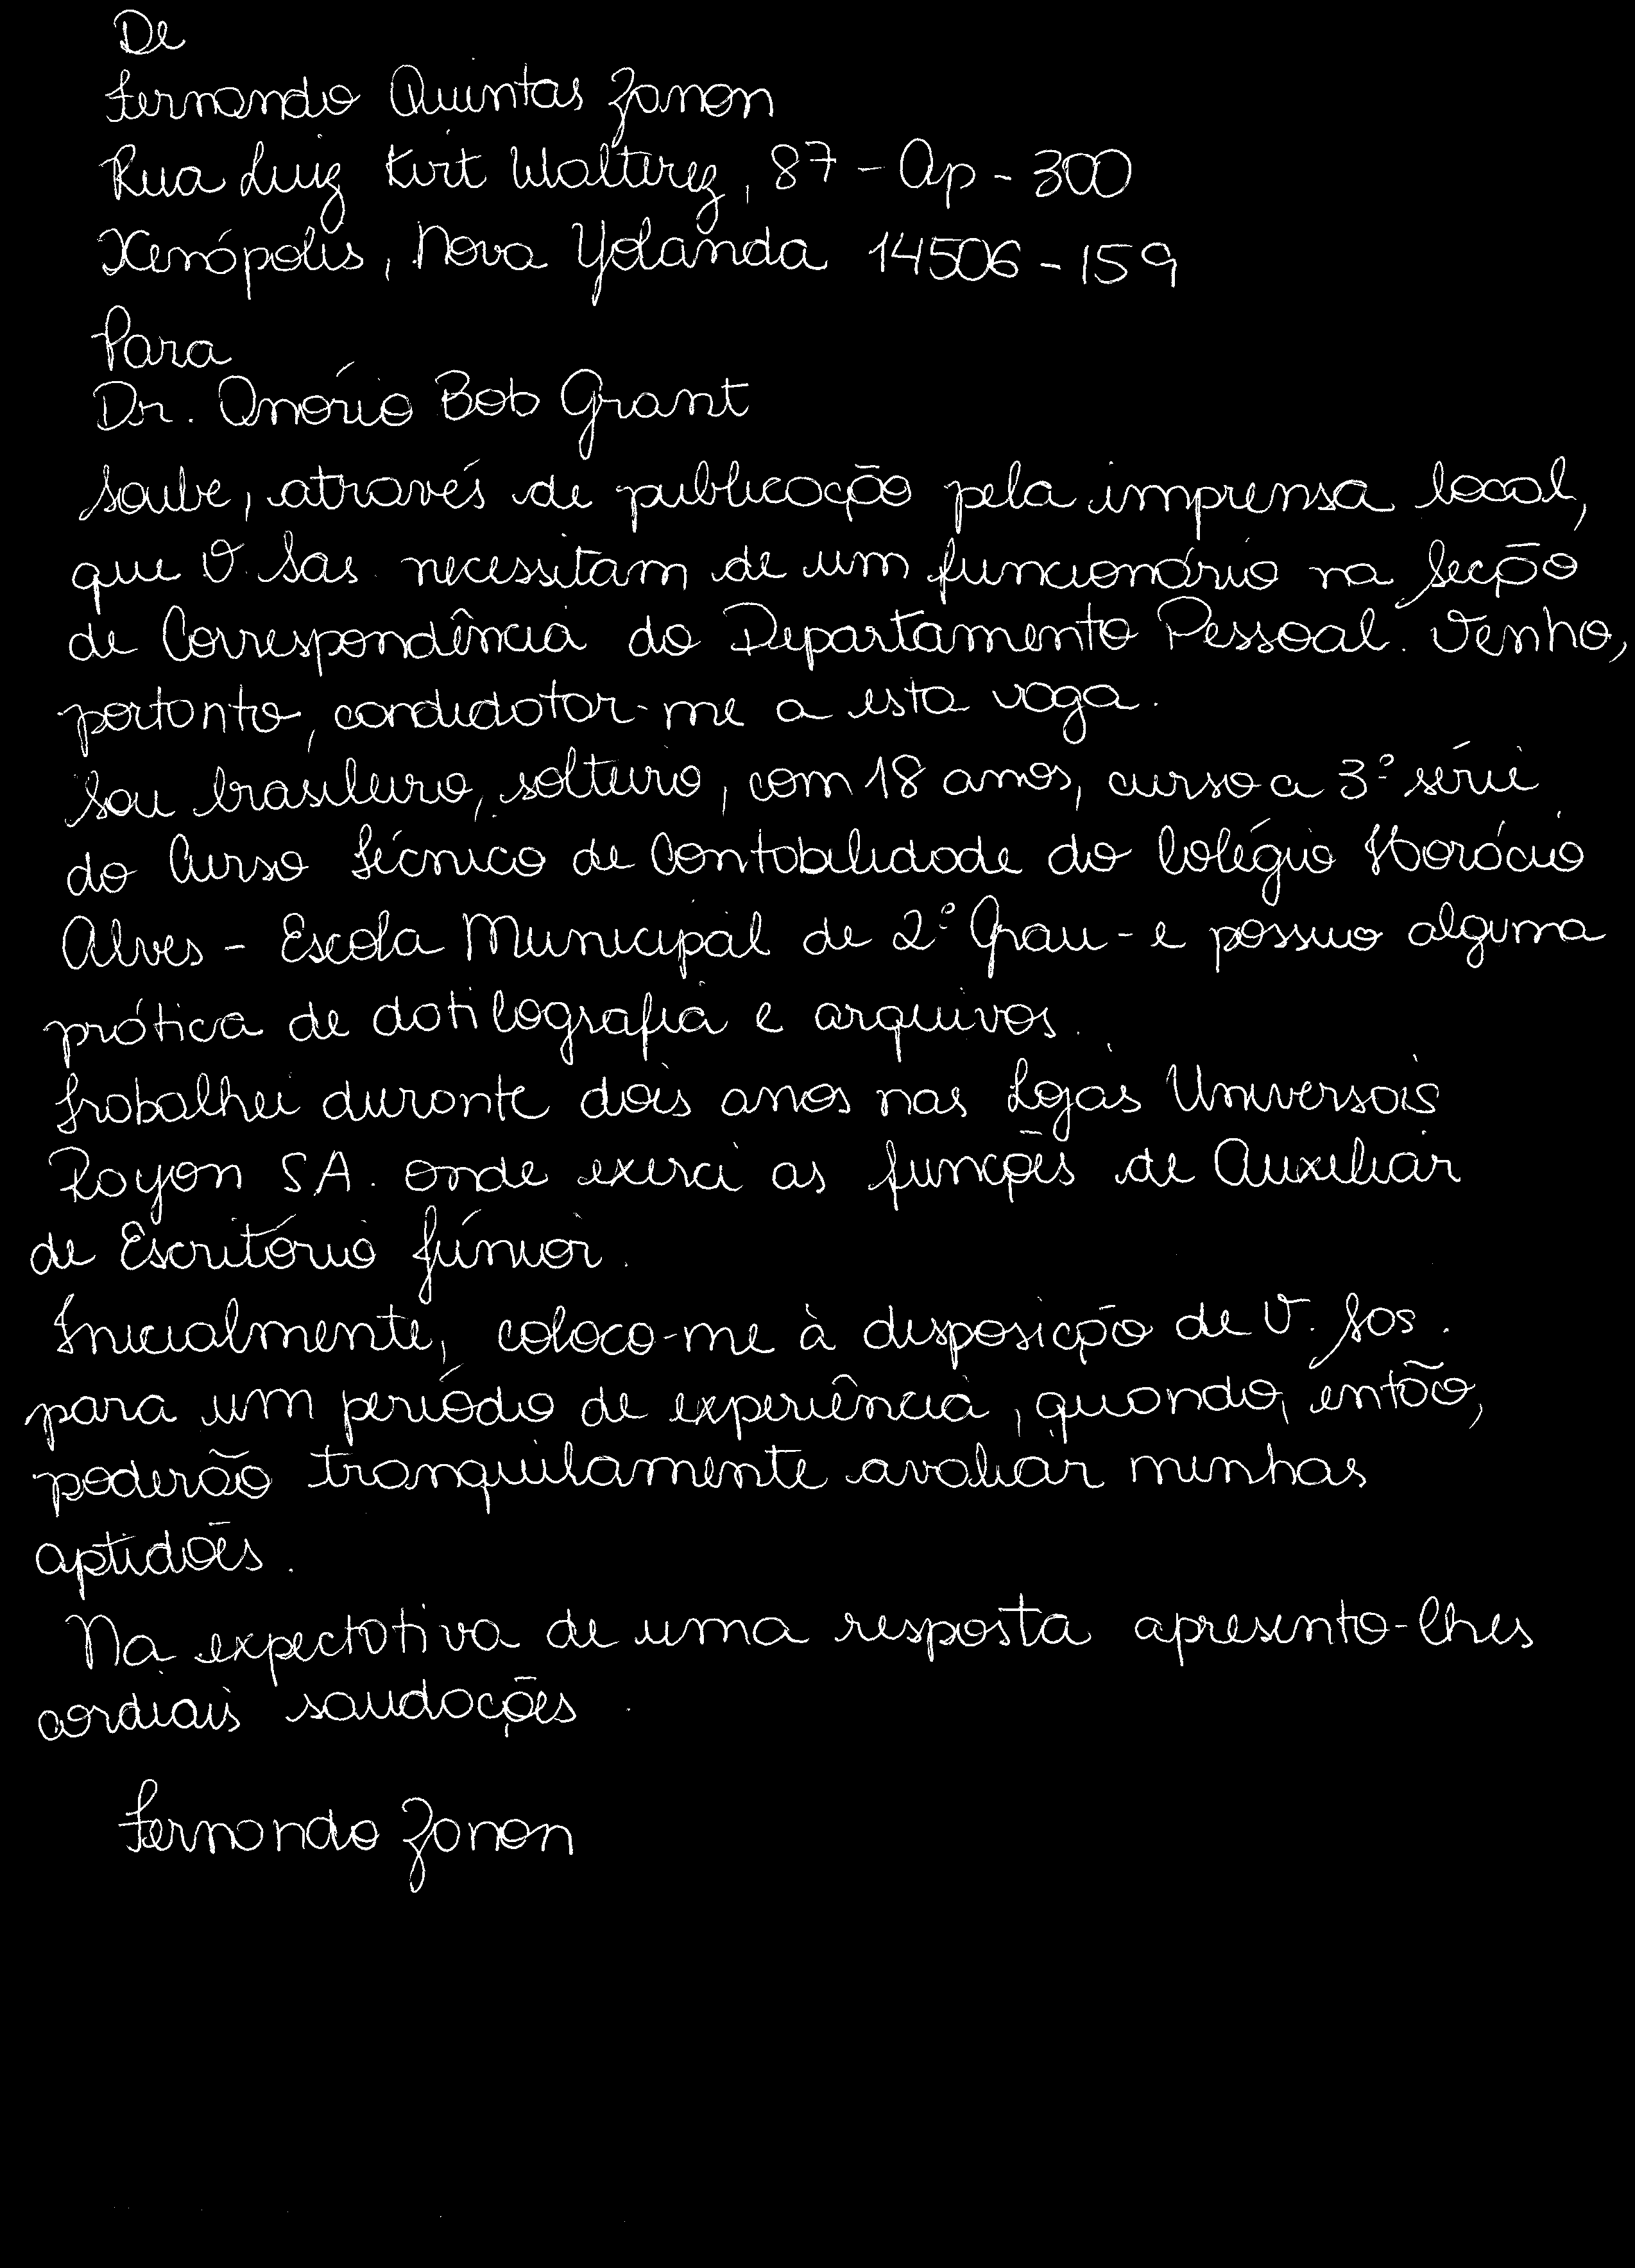 De
Fernando Quintas Zanon
Rua Luiz Kurt Walterez, 87 - Ap - 300
Xenópolis, Nova Yolanda 14506-159
Para
Dr. Onório Bob Grant
Soube, através de publicação pela imprensa local,
que V. Sas. necessitam de um funcionário na Secção
de Correspondência do Departamento Pessoal. Venho,
portanto, candidatar-me a esta vaga.
Sou brasileiro, solteiro, com 18 anos, curso a 3ª série
do Curso Técnico de Contabilidade do Colégio Horácio
Alves - Escola Municipal de 2º Grau - e possuo alguma
prática de datilografia e arquivos.
Trabalhei durante dois anos nas Lojas Universais
Rayon S.A. onde exerci as funções de Auxiliar
de Escritório Júnior.
Inicialmente, coloco-me à disposição de V. Sas.
para um período de experiência, quando, então,
poderão tranquilamente avaliar minhas
aptidões.
Na expectativa de uma resposta apresento-lhes
cordiais saudações.
Fernando Zanon